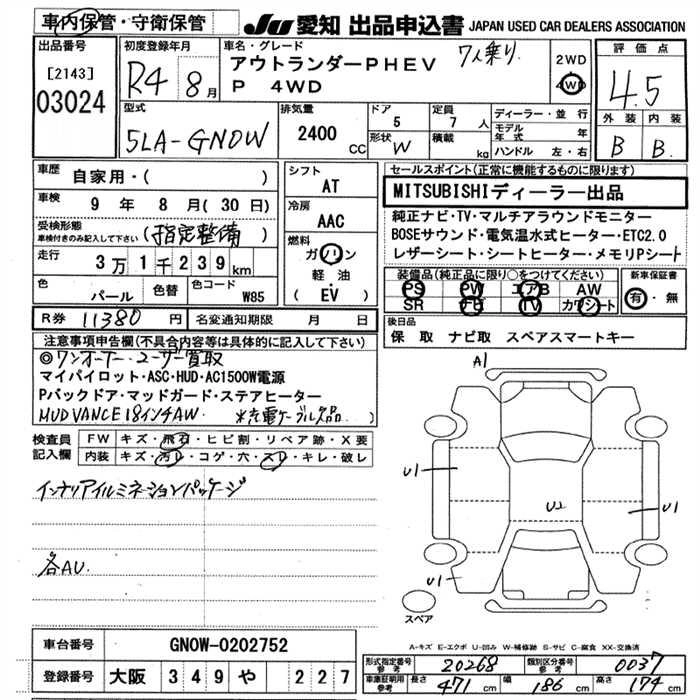 車内保管・守衛保管
JU 愛知 出品申込書 JAPAN USED CAR DEALERS ASSOCIATION
出品番号
[2143]
03024
初度登録年月
R4 8月
車名・グレード
7人乗り
アウトランダーPHEV
P 4WD
2WD
4WD
評価点
4.5
外装 内装
B B.
型式
5LA-GN0W
排気量
2400
CC
ドア
5
形状
W
定員
7人
積載
kg
ディーラー・並行
モデル年式 年
ハンドル 左・右
車歴
自家用・( )
車検
9年 8月(30日)
受検形態
車検付きのみ記入して下さい
(指定整備)
走行
3万1千239km
色
パール
色替
色コード
W85
シフト
AT
冷房
AAC
燃料
ガソリン
軽油
(EV)
セールスポイント(正常に機能するものに限ります)
MITSUBISHIディーラー出品
純正ナビ・TV・マルチアラウンドモニター
BOSEサウンド・電気温水式ヒーター・ETC2.0
レザーシート・シートヒーター・メモリPシート
装備品(純正品に限り○をつけてください)
PS PW エアB AW
SR ナビ TV カワシート
新車保証書
有・無
R券 11380円
名変通知期限 月 日
後日品
保 取 ナビ取 スペアスマートキー
注意事項申告欄(不具合内容等は具体的に記入して下さい)
◎ワンオーナー ユーザー買取
マイパイロット・ASC・HUD・AC1500W電源
Pバックドア・マッドガード・ステアヒーター
MUD VANCE 18インチAW. ※充電ケーブル欠品
検査員
記入欄
FW キズ・飛石・ヒビ割・リペア跡・X要
内装 キズ・汚レ・コゲ・穴・スレ・キレ・破レ
インテリアイルミネーションパッケージ
各AU.
A1
U1
U2
U1
U1
スペア
A-キズ E-エクボ U-凹み W-補修跡 S-サビ C-腐食 XX-交換済
車台番号
GN0W-0202752
登録番号
大阪 349 や 227
型式指定番号
参考
20268
類別区分番号
参考
0037
車庫証明用
参考
長さ 471cm
幅 186cm
高さ 174cm